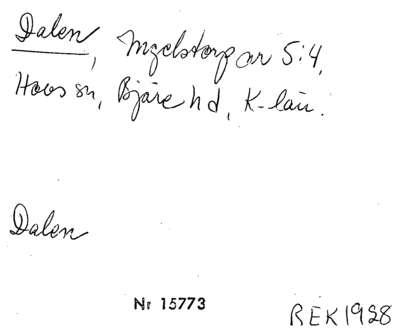 Dalen, Ingelstorp ar 5:4,
Hovs sn, Bjäre hd, K-län.
Dalen
Nr 15773
REK 1928